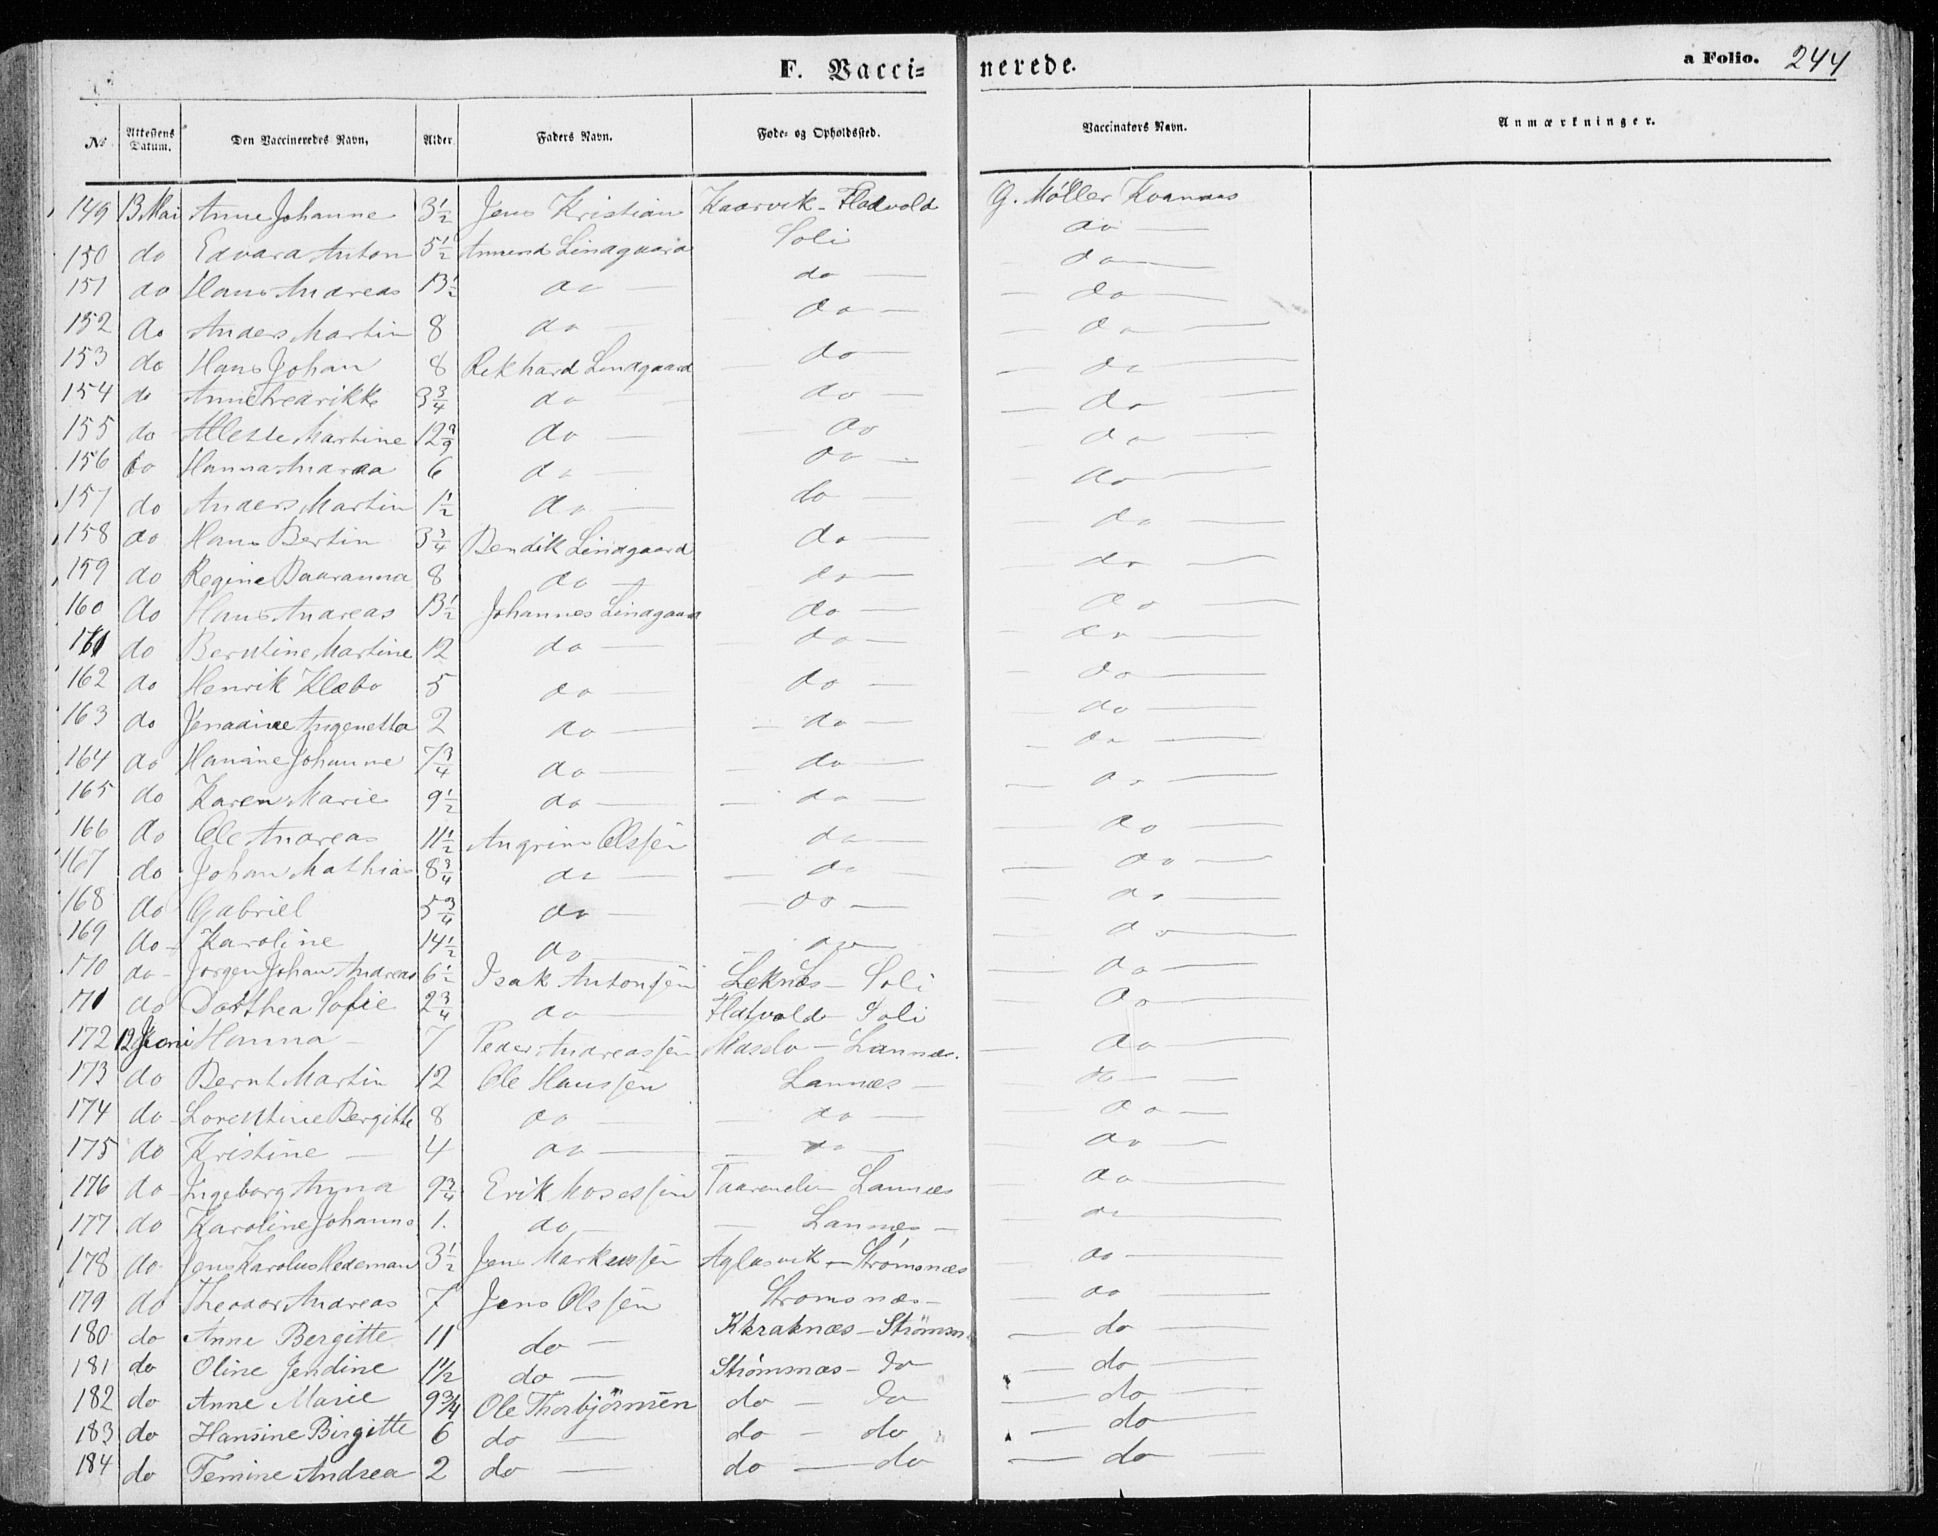 F. Vacci= nerede. a Folio. 244
№ Attestens Datum. Den Vaccineredes Navn, Alder Faders Navn. Føde- og Opholdssted. Vaccinators Navn. Anmærkninger.
149 13 Mai Anne Johanne 3½ Jens Kristian Kaarvik - Fladvold G. Möller Kvannaas
150 do Edvard Anton 5½ Amund Lindgaard Soli do
151 do Hans Andreas 13½ do do do
152 do Anders Martin 8 do do do
153 do Hans Johan 8 Rekhard Lindgaard do do
154 do Anne Fredrikke 3¾ do do do
155 do Martine 12 do do do
156 do Hanna Andrea 6 do do do
157 do Anders Martin 1½ do do do
158 do Hans Bertin 3¾ Bendik Lindgaard do do
159 do Regine Baaranna 8 do do do
160 do Hans Andreas 13½ Johannes Lindgaard do do
161 do Berntine Martine 12 do do do
162 do Henrik Klæbo 5 do do do
163 do Angenetta 2 do do do
164 do Hansine Johanne 7¾ do do do
165 do Karen Marie 9½ do do do
166 do Ole Andreas 11½ Angrim Olssen do do
167 do Johan Mathias 8¾ do do do
168 do Gabriel 5¾ do do do
169 do Karoline 14½ do do do
170 do Jørgen Johan Andreas 6½ Isak Antonsen Leknes - Soli do
171 do Dorthea Sofie 2¾ do Flatvold - Soli do
172 12 Juni Hanna 7 Peder Andreassen - Lannes. do
173 do Bernt Martin 12 Ole Hanssen Lannæs do
174 do Lorentine Bergitte 8 do do do
175 do Kristine 4 do do do
176 do Ingeborg Anna 9¾ Erik Mosessen Taarendli - Lannæs do
177 do Karoline Johanne 1. do Lannæs do
178 do Jens Karolus Hedeman 3½ Jens Markussen Aglasvik - Strømsnæs do
179 do Theodor Andreas 7 Jens Olssen Strømsnæs do
180 do Anne Bergitte 11 do Kkraknæs - Strömsn do
181 do Oline Jendine 1½ do Strømsnæs - do do
182 do Anne Marie 9¾ Ole Thorbjörnsen do - do do
183 do Hansine Birgitte 6 do do - do do
184 do Femine Andrea 2 do do - do do